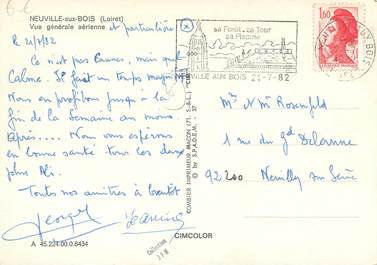 6-
NEUVILLE-aux-BOIS (Loiret)
Vue générale aérienne et particulière
Le 21/7/82
Ce n'est pas Cannes, mais que
Calme. Il fait un temps magnifique
Nous en profitons jusqu'à la
fin de la semaine au moins
après.... Nous vous espérons
en bonne santé tous les deux
Toutes nos amitiés à bientôt
Georges Jeannine
A 45.224.00.0.6434
COMBIER IMPRIMEUR MACON (71. S.-&-L.) "CIM"
© by S.P.A.D.E.M. 57
CIMCOLOR
Collection
sa Forêt, sa Tour
sa Piscine
NEUVILLE AUX BOIS 21-7-82
1,60
Mme et Mr Rosenfeld
1 rue du Gd Delorme
92200 Neuilly sur Seine